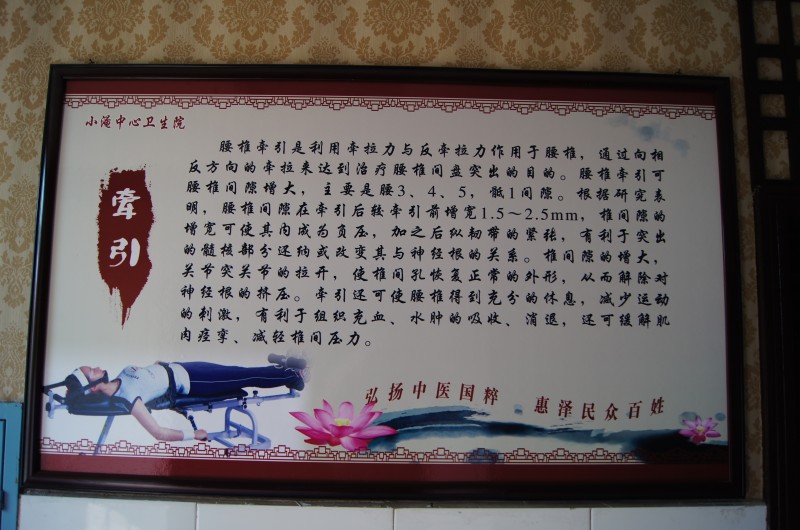 小滩中心卫生院
牵引
腰椎牵引是利用牵拉力与反牵拉力作用于腰椎，通过向相
反方向的牵拉来达到治疗腰椎间盘突出的目的。腰椎牵引可
使腰椎间隙增大，主要是腰3、4、5，骶1间隙。根据研究表
明，腰椎间隙在牵引后较牵引前增宽1.5～2.5mm，椎间隙的
增宽可使其内成为负压，加之后纵韧带的紧张，有利于突出
的髓核部分还纳或改变其与神经根的关系。椎间隙的增大，
关节突关节的拉开，使椎间孔恢复正常的外形，从而解除对
神经根的挤压。牵引还可使腰椎得到充分的休息，减少运动
的刺激，有利于组织充血、水肿的吸收、消退，还可缓解肌
肉痉挛、减轻椎间压力。
弘扬中医国粹 惠泽民众百姓